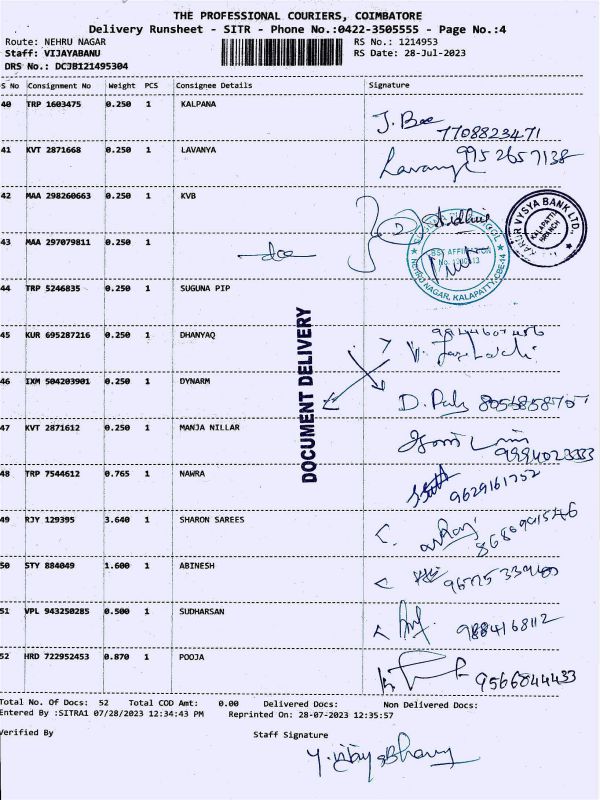 THE PROFESSIONAL COURIERS, COIMBATORE
Delivery Runsheet - SITR - Phone No.:0422-3505555 - Page No.:4
Route: NEHRU NAGAR RS No.: 1214953
Staff: VIJAYABANU RS Date: 28-Jul-2023
DRS No.: DCJB121495304
S No Consignment No Weight PCS Consignee Details Signature
40 TRP 1603475 0.250 1 KALPANA
J. Bee
7708823471
41 KVT 2871668 0.250 1 LAVANYA
Lavanya 9952657138
42 MAA 298260663 0.250 1 KVB
KARUR VYSYA BANK LTD.
KALAPATTI BRANCH
43 MAA 297079811 0.250 1
NEHRU NAGAR, KALAPATTY, CBE-14
44 TRP 5246835 0.250 1 SUGUNA PIP
45 KUR 695287216 0.250 1 DHANYAQ
46 IXM 504203901 0.250 1 DYNARM
DOCUMENT DELIVERY
47 KVT 2871612 0.250 1 MANJA NILLAR
48 TRP 7544612 0.765 1 NAWRA
9629161752
49 RJY 129395 3.640 1 SHARON SAREES
50 STY 884049 1.600 1 ABINESH
51 VPL 943250285 0.500 1 SUDHARSAN
9884168112
52 HRD 722952453 0.870 1 POOJA
9566844433
Total No. Of Docs: 52 Total COD Amt: 0.00 Delivered Docs: Non Delivered Docs:
Entered By :SITRA1 07/28/2023 12:34:43 PM Reprinted On: 28-07-2023 12:35:57
Verified By Staff Signature